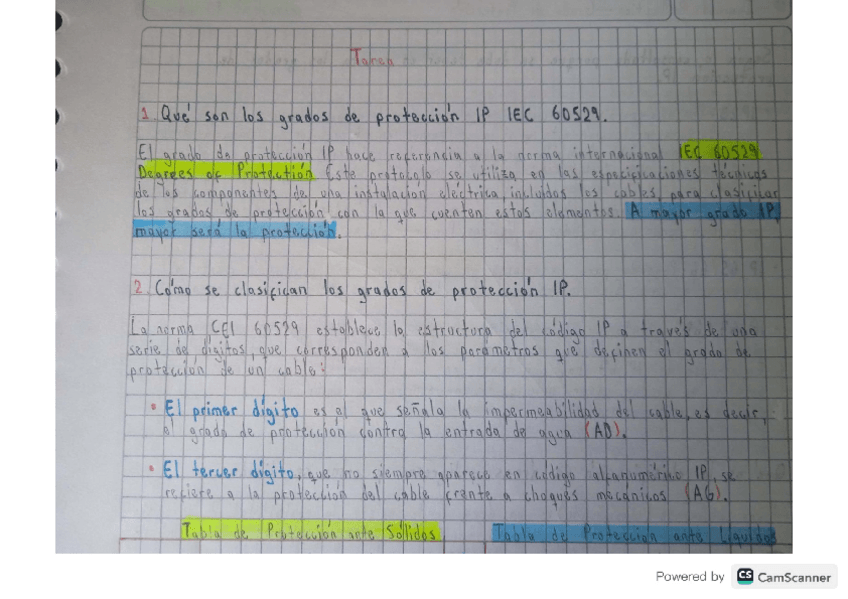 Tarea
1. Qué son los grados de protección IP IEC 60529.
El grado de protección IP hace referencia a la norma internacional IEC 60529
Degrees of Protection. Este protocolo se utiliza en las especificaciones técnicas
de los componentes de una instalación eléctrica, incluidos los cables, para clasificar
los grados de protección con la que cuenten estos elementos. A mayor grado IP,
mayor será la protección.
2. Cómo se clasifican los grados de protección IP.
La norma CEI 60529 establece la estructura del código IP a través de una
serie de dígitos, que corresponden a los parámetros que definen el grado de
protección de un cable:
• El primer dígito es el que señala la impermeabilidad del cable, es decir,
el grado de protección contra la entrada de agua (AD).
• El tercer dígito, que no siempre aparece en código alfanumérico IP, se
refiere a la protección del cable frente a choques mecánicos (AG).
Tabla de Protección ante Sólidos Tabla de Protección ante Líquidos
Powered by CS CamScanner